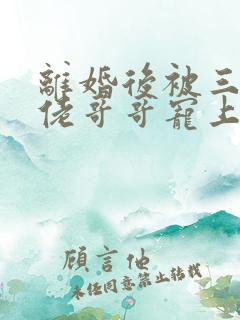 離婚後被三
佬哥哥寵上
顧言他
未任同意禁止轉載